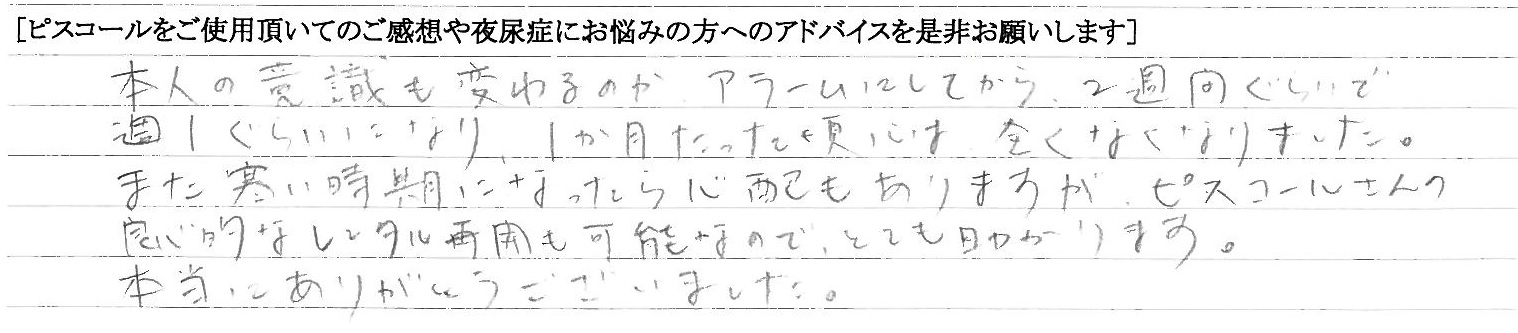 [ピスコールをご使用頂いてのご感想や夜尿症にお悩みの方へのアドバイスを是非お願いします]
本人の意識も変わるのか、アラームにしてから、2週間ぐらいで
週1ぐらいになり、1か月たった頃には、全くなくなりました。
また寒い時期になったら心配もありますが、ピスコールさんの
良心的なレンタル再開も可能なので、とても助かります。
本当にありがとうございました。